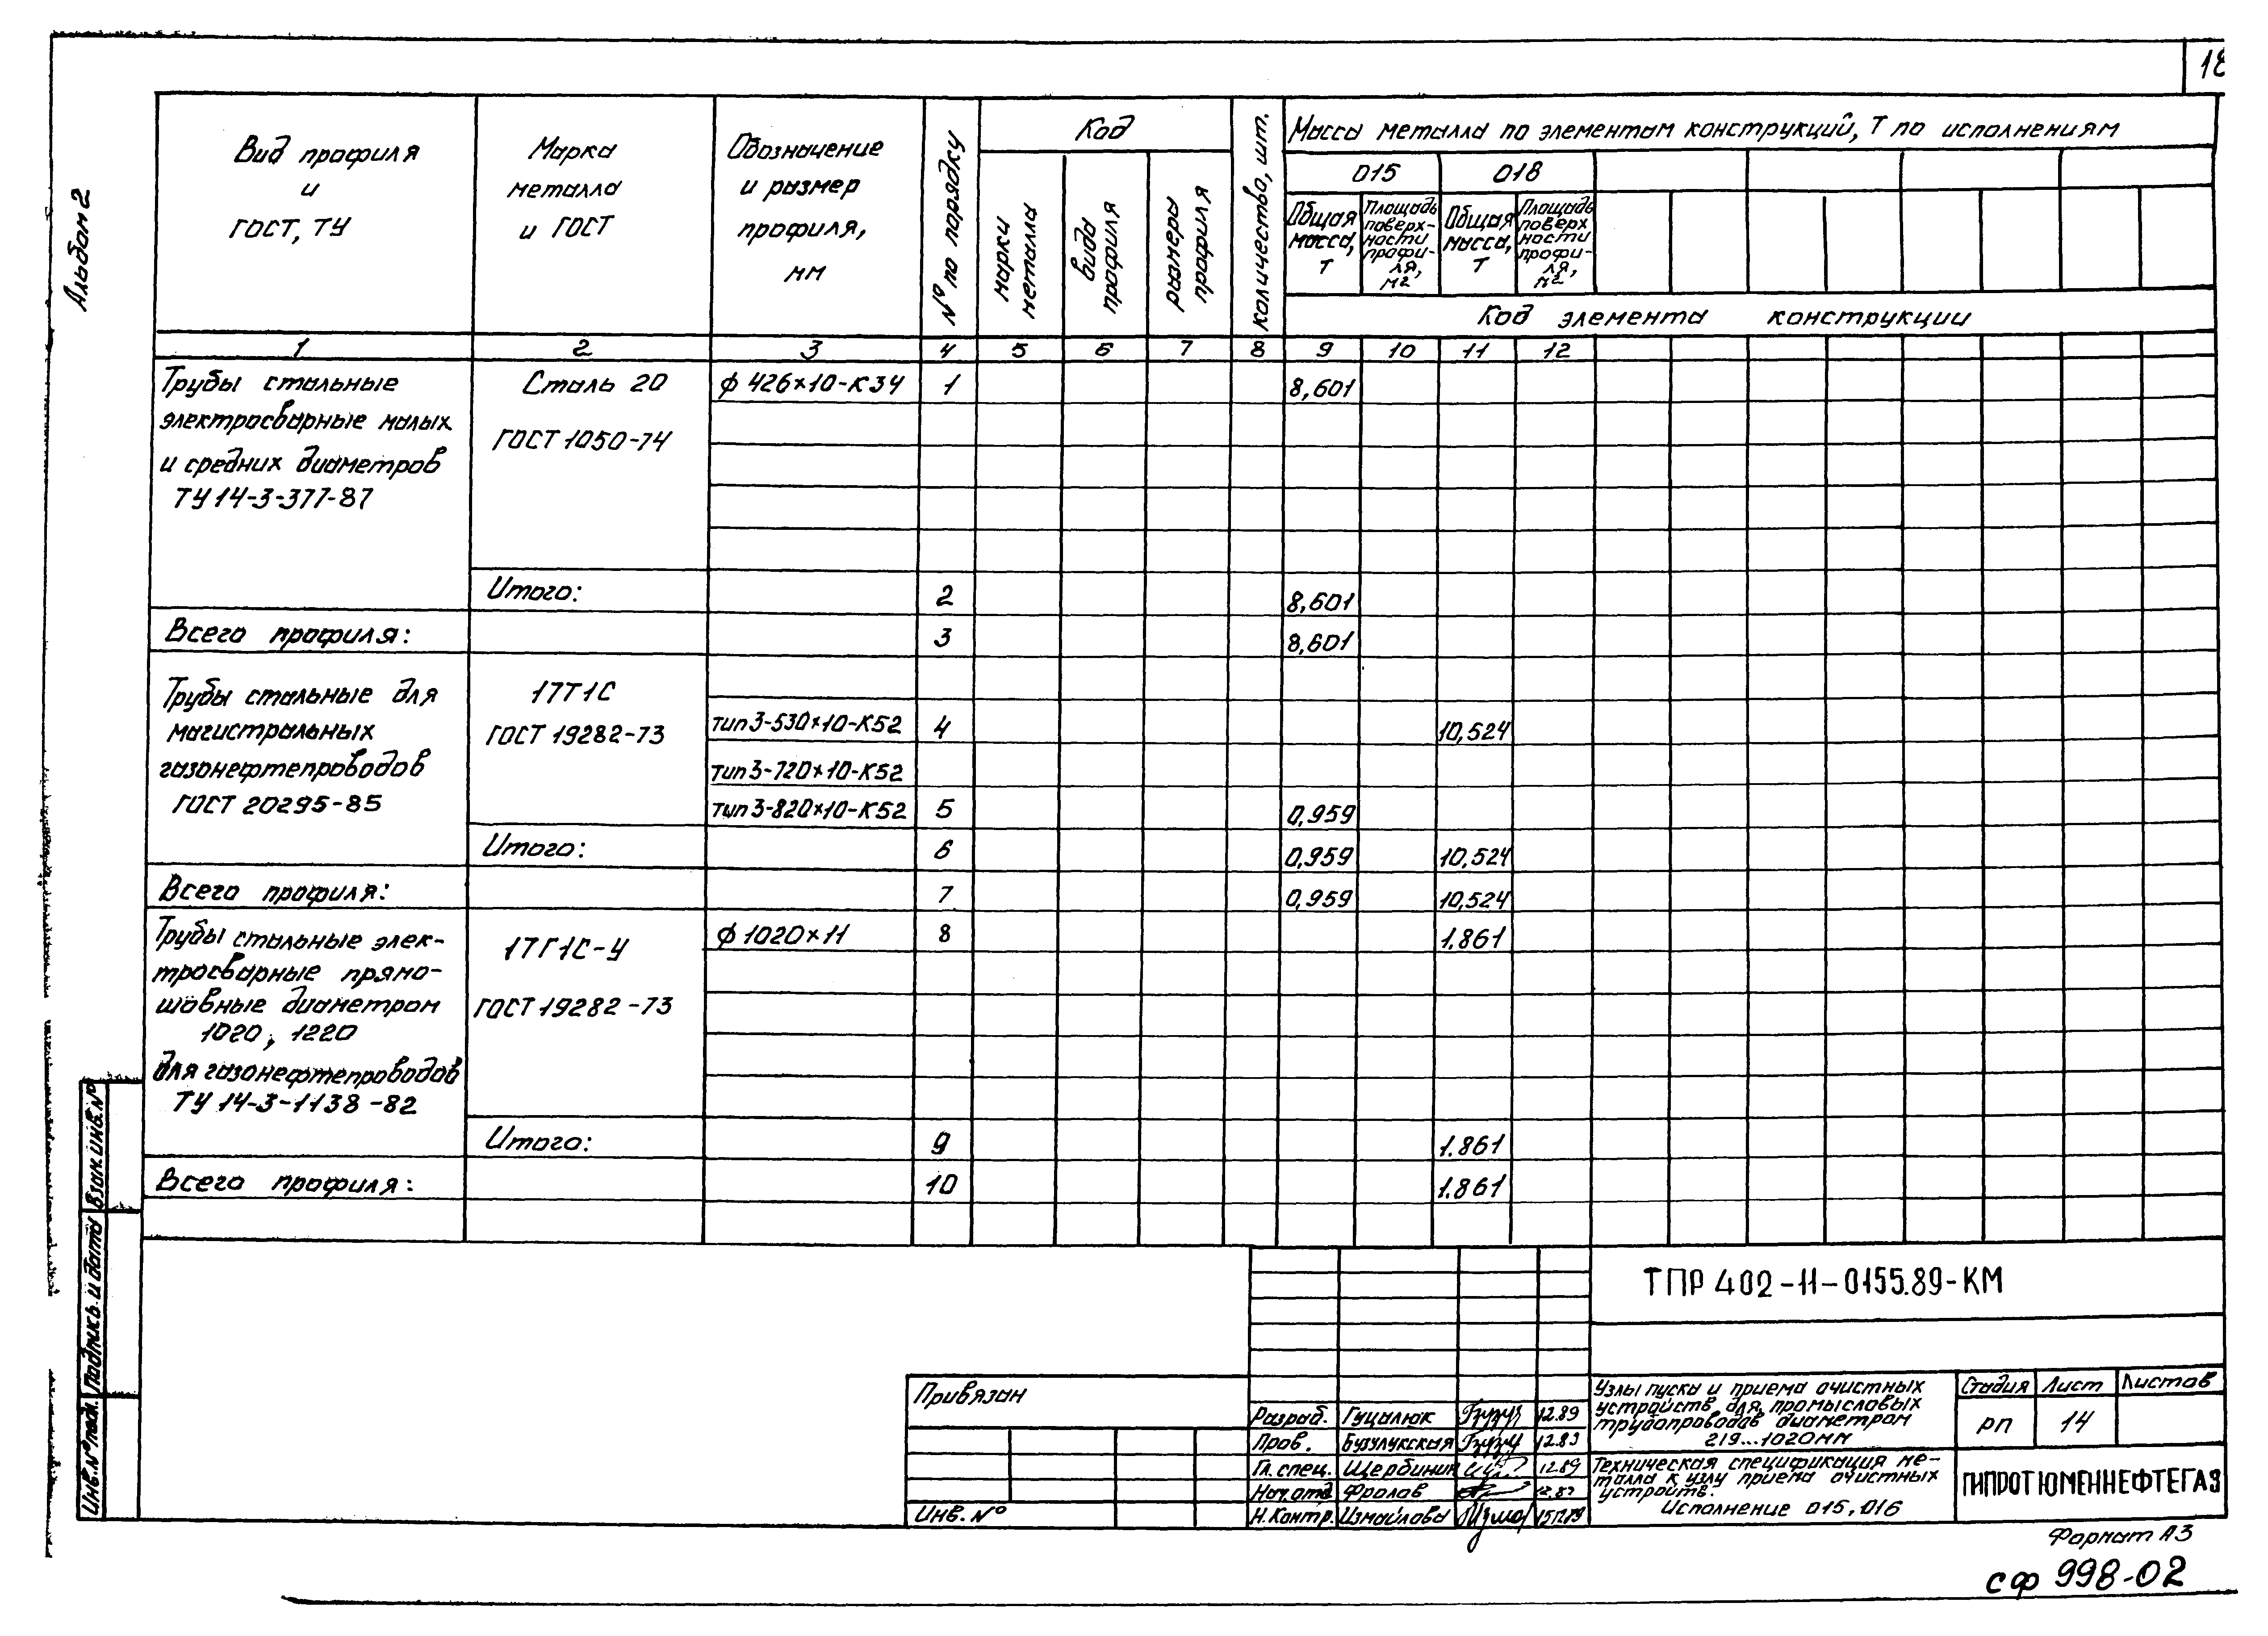 18
Альбом 2
Вид профиля
и
ГОСТ, ТУ
Марка
металла
и ГОСТ
Обозначение
и размер
профиля,
мм
№ по порядку
Код
марки
металла
вида
профиля
размера
профиля
количество, шт.
Масса металла по элементам конструкций, Т по исполнениям
015
018
Общая
масса,
Т
Площадь
поверх-
ности
профи-
ля,
м²
Общая
масса,
Т
Площадь
поверх
ности
профи-
ля,
м²
Код элемента конструкции
1 2 3 4 5 6 7 8 9 10 11 12
Трубы стальные
электросварные малых
и средних диаметров
ТУ 14-3-377-87
Сталь 20
ГОСТ 1050-74
ϕ 426×10-К34 1 8,601
Итого: 2 8,601
Всего профиля: 3 8,601
Трубы стальные для
магистральных
газонефтепроводов
ГОСТ 20295-85
17Т1С
ГОСТ 19282-73
тип3-530×10-К52 4 10,524
тип3-720×10-К52
тип3-820×10-К52 5 0,959
Итого: 6 0,959 10,524
Всего профиля: 7 0,959 10,524
Трубы стальные элек-
тросварные прямо-
шовные диаметром
1020, 1220
для газонефтепроводов
ТУ 14-3-1138-82
17Г1С-У
ГОСТ 19282-73
ϕ 1020×11 8 1.861
Итого: 9 1.861
Всего профиля: 10 1.861
Взам.инв.№
Подпись и дата
Инв.№ подл.
ТПР 402-11-0155.89-КМ
Привязан
Инв. №
Разраб. Гуцалюк 12.89
Пров. Бузулукская 12.89
Гл. спец. Щербинин 12.89
Нач.отд Фролов 12.89
Н.Контр. Измайлова
Узлы пуска и приема очистных
устройств для промысловых
трубопроводов диаметром
219...1020мм
Стадия Лист Листов
РП 14
Техническая спецификация ме-
талла к узлу приема очистных
устройств.
Исполнение 015, 016
ГИПРОТЮМЕННЕФТЕГАЗ
Формат А3
сф 998-02